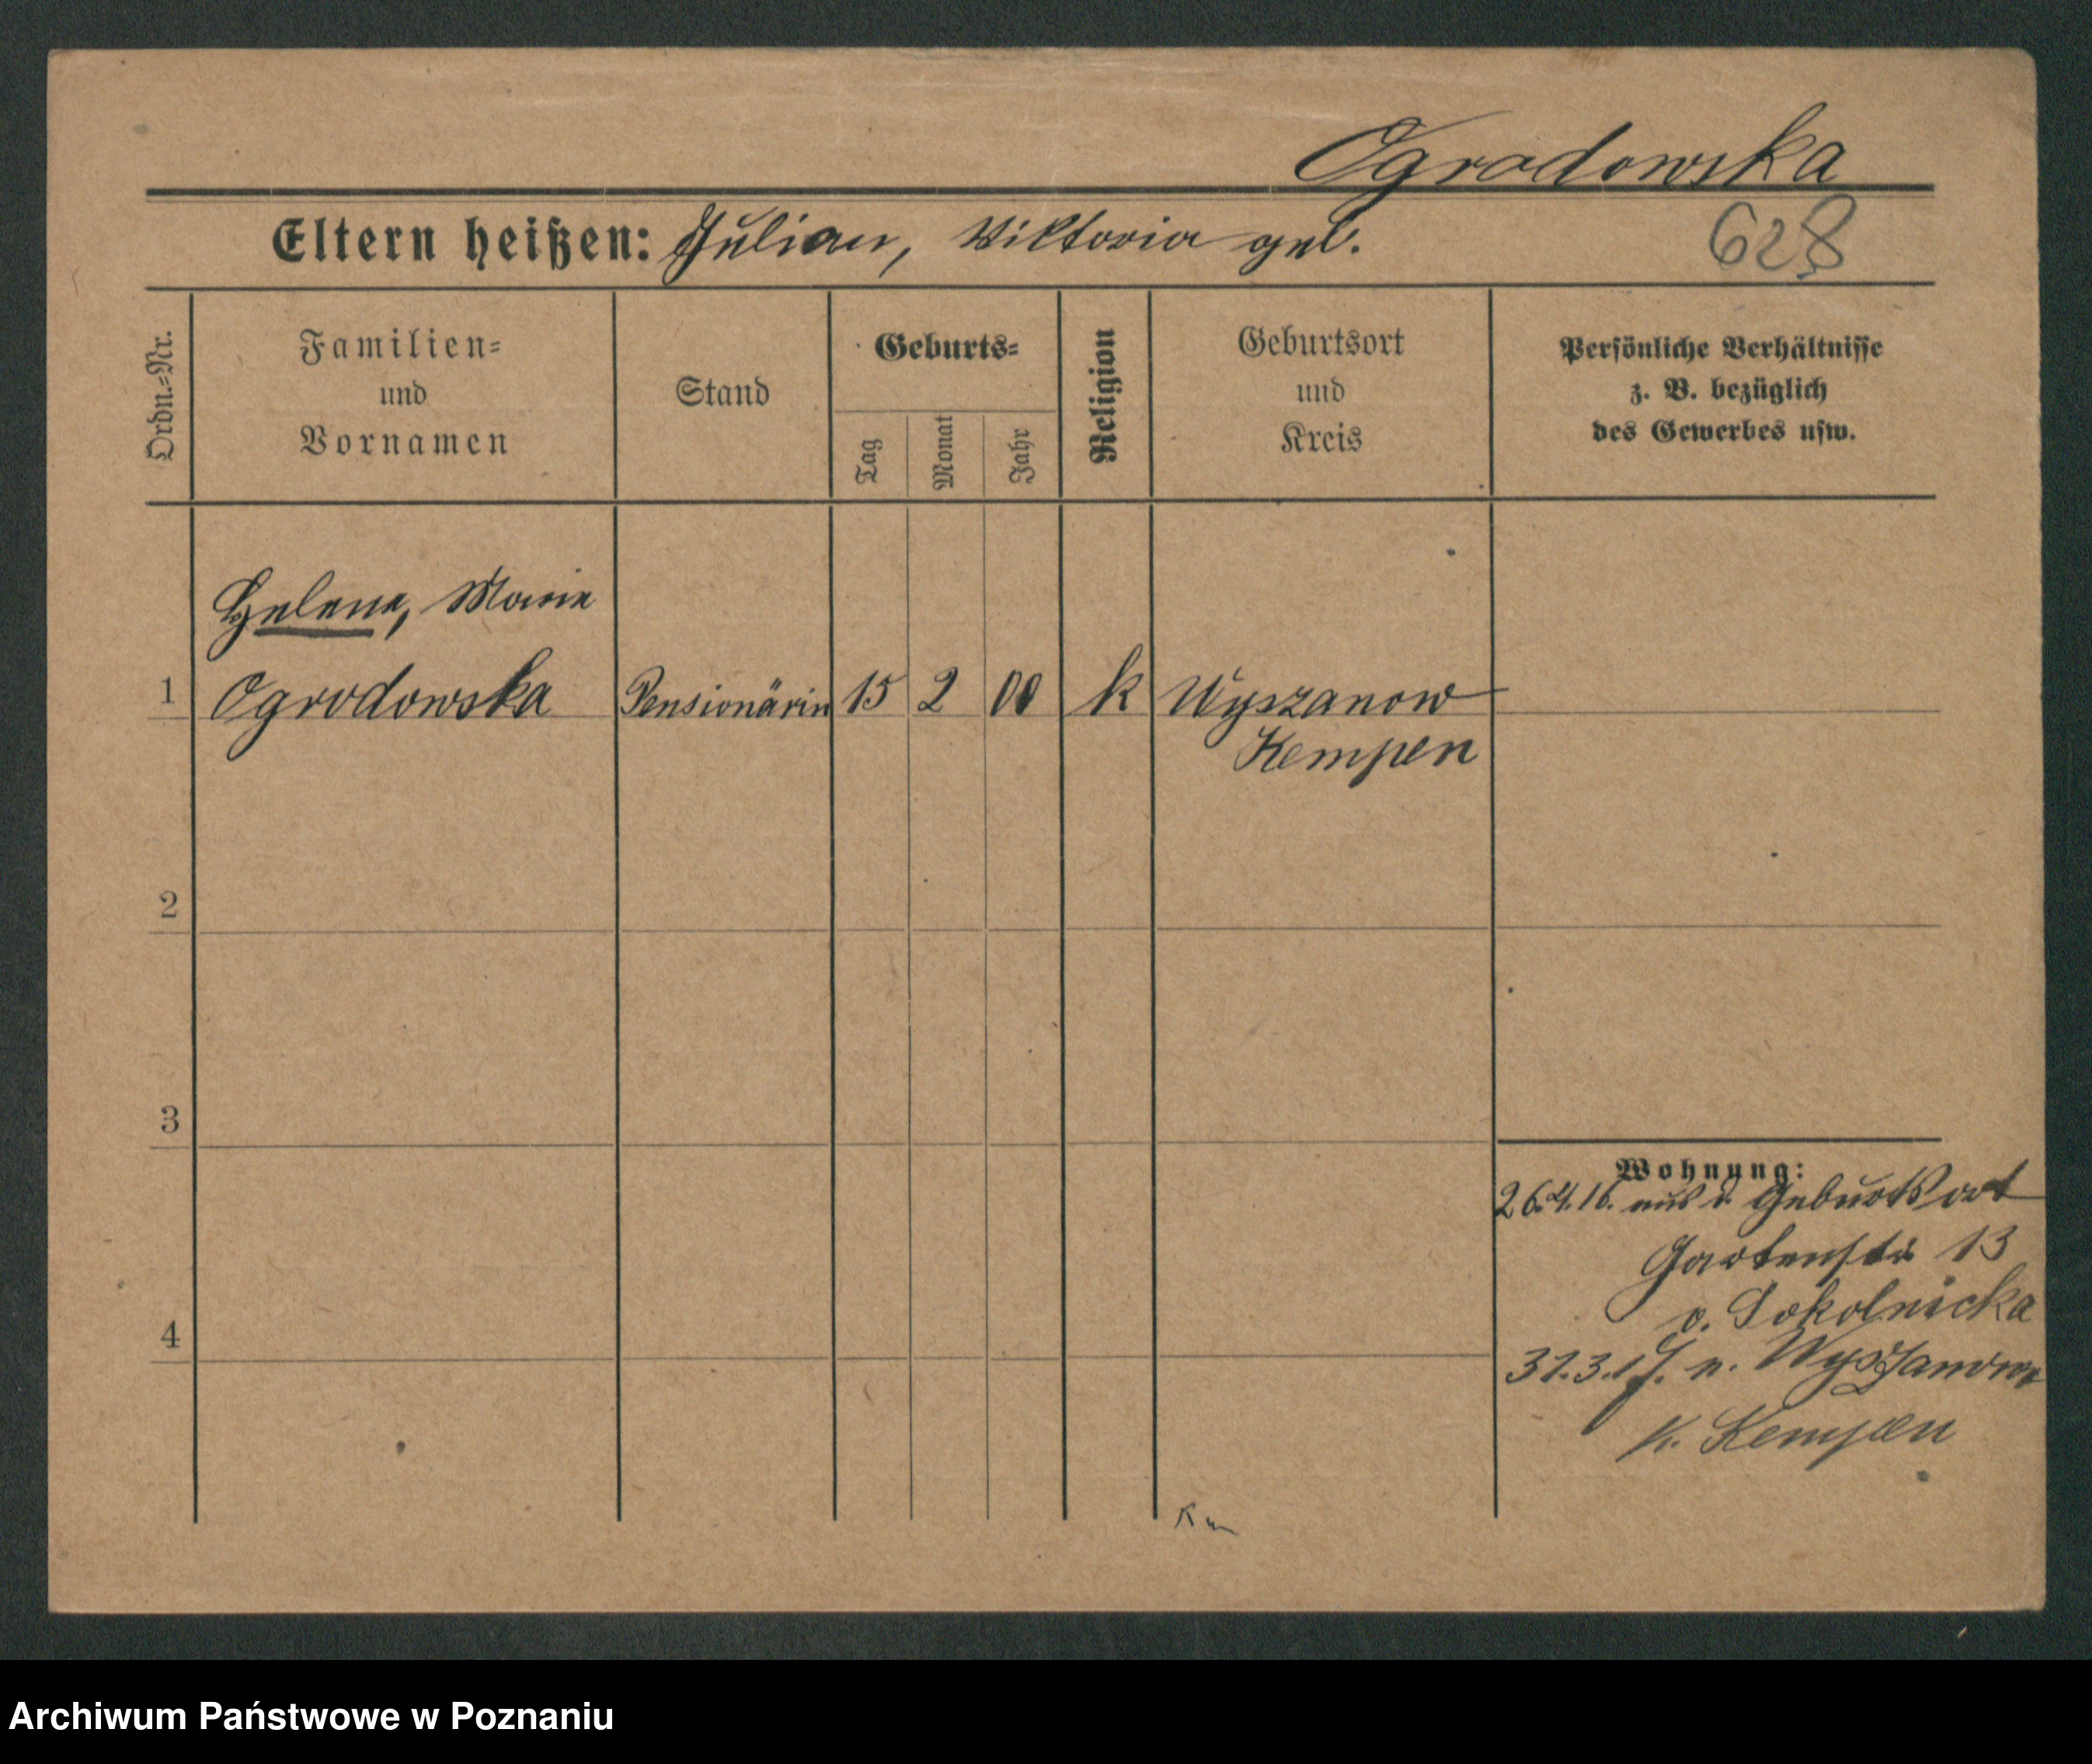 Ogrodowska
Eltern heißen: Julian, Viktoria geb.
628
Ordn.-Nr.
Familien-
und
Vornamen
Stand
Geburts-
Tag
Monat
Jahr
Religion
Geburtsort
und
Kreis
Persönliche Verhältnisse
z. B. bezüglich
des Gewerbes usw.
Helene, Marie
1 Ogrodowska Pensionärin 15 2 00 k Wyszanow
Kempen
2
3
4
Wohnung:
26.4.16. aus d. Geburtsort
Gartenstr 13
v. Sokolnicka
31.3.17. n. Wyszanow
K. Kempen
Archiwum Państwowe w Poznaniu